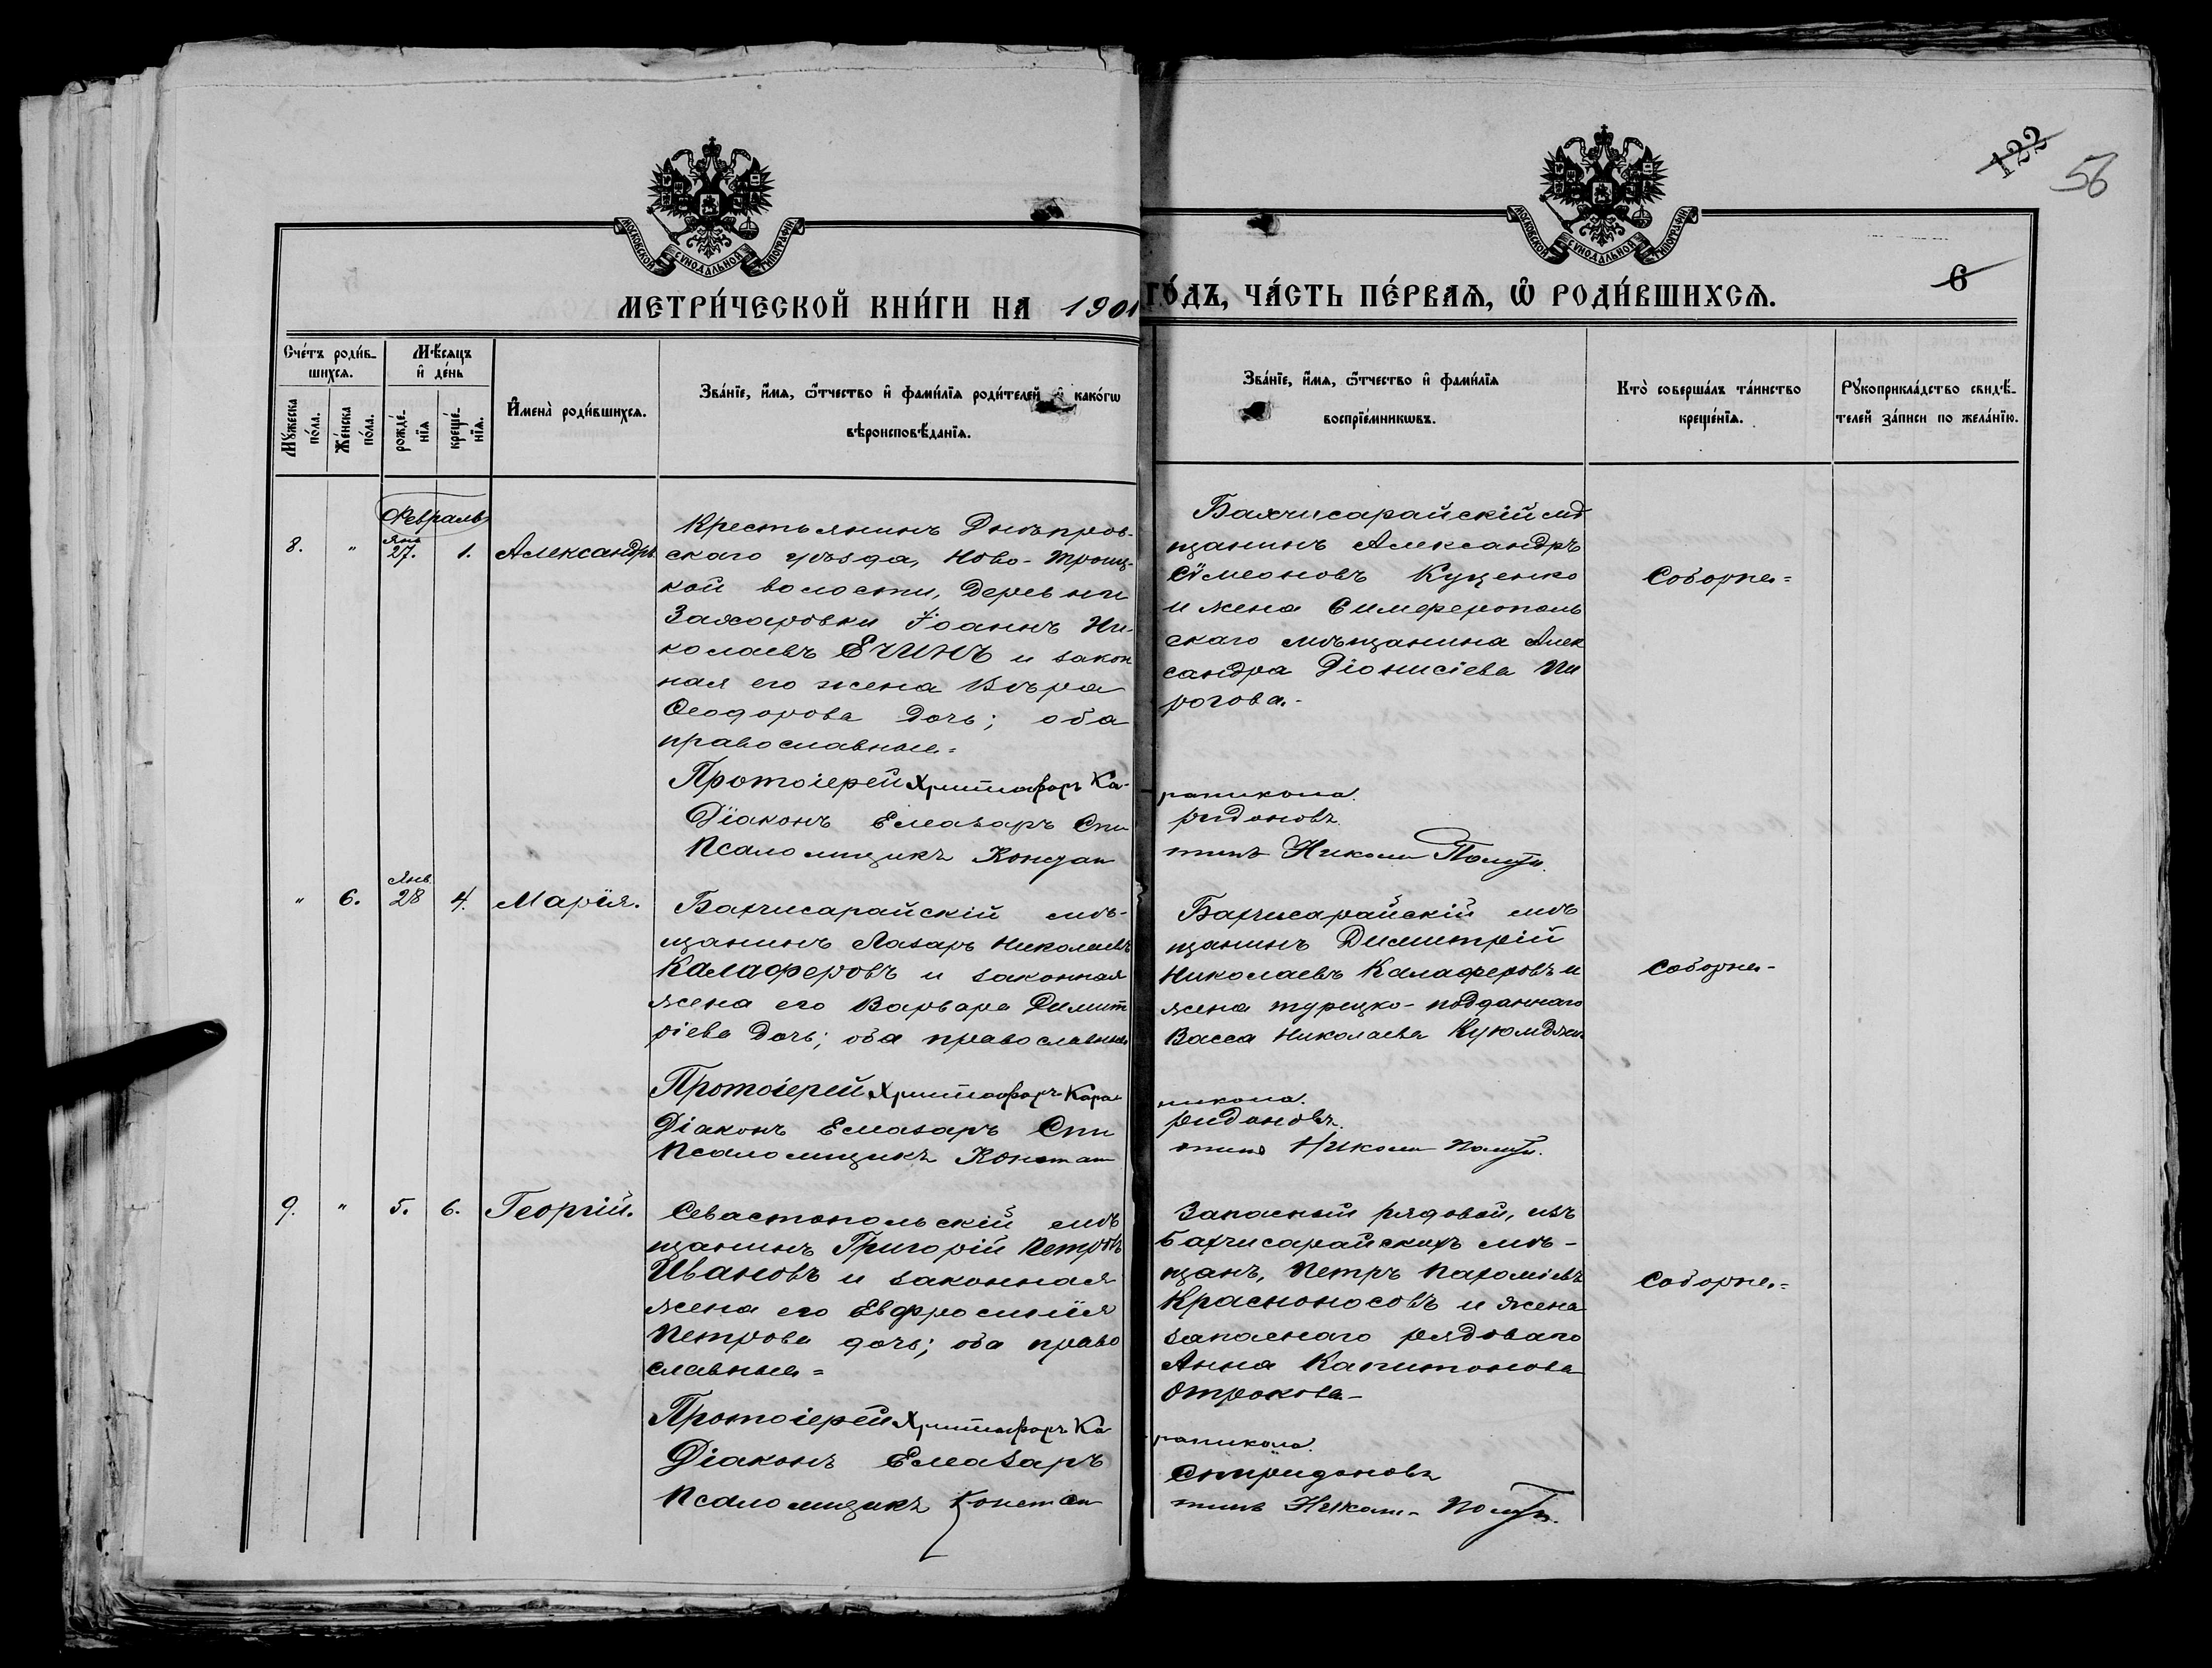 122
56
МОСКОВСКОЙ СѴНОДАЛЬНОЙ ТИПОГРАФІИ
МОСКОВСКОЙ СѴНОДАЛЬНОЙ ТИПОГРАФІИ
6
МЕТРИ́ЧЕСКОЙ КНИ́ГИ НА 1901 ГО́ДЪ, ЧА́СТЬ ПЕ́РВАѦ, Ѡ РОДИ́ВШИХСѦ.
Сче́тъ роди́в-
шихсѧ.
Мꙋ́жеска
по́ла.
Же́нска
по́ла.
Мѣ́сѧцъ
и҆ де́нь
рожде́-
нїѧ
креще́-
нїѧ.
И҆мена̀ роди́вшихсѧ.
Зва́нїе, и҆́мѧ, ѻ҆́тчество и҆ фами́лїѧ роди́телей и҆ како́гѡ
вѣроисповѣ́данїѧ.
Зва́нїе, и҆́мѧ, ѻ҆́тчество и҆ фами́лїѧ
воспрїе́мникѡвъ.
Кто̀ соверша́лъ та́инство
креще́нїѧ.
Рꙋкоприкла́дство свидѣ́-
телей за́писи по жела́нїю.
Февраль
8.
"
Янв
27.
1.
Александръ.
Крестьянинъ Днѣпров-
скаго уѣзда, Ново-Троиц-
кой волости, деревни
Захаровки Іоаннъ Ни-
колаевъ ЕЧИНЪ и закон
ная его жена Вѣра
Ѳеодорова дочь; оба
православные=
Бахчисарайскій мѣ
щанинъ Александръ
Сѷмеоновъ Куценко
и жена Симферополь
скаго мѣщанина Алек
сандра Діонисіева Пи
рогова.-
Соборне=
Протоіерей Христофоръ Ка-
раникола.
Діаконъ Елеазаръ Спи
ридоновъ.
Псаломщикъ Констан
тинъ
"
6.
Янв.
28
4.
Марія.
Бахчисарайскій мѣ-
щанинъ Лазарь Николаевъ
Калафѳровъ и законная
жена его Варвара Димит
ріева дочь; оба православные
Бахчисарайскій мѣ
щанинъ Димитрій
Николаевъ Калафѳровъ и
жена турецко-подданнаго
Васса Николаева
Соборне-
Протоіерей Христофоръ Кара-
никола.
Діаконъ Елеазаръ Спи
ридоновъ.
Псаломщикъ Констан
тинъ
9.
"
5.
6.
Георгій.
Севастопольскій мѣ
щанинъ Григорій Петровъ
Ивановъ и законная
жена его Евфросинія
Петрова дочь; оба право
славные=
Запасный рядовой, изъ
Бахчисарайскихъ мѣ-
щанъ, Петръ Пахоміевъ
Красноносовъ и жена
запаснаго рядоваго
Анна Капитонова
Отрокова-
Соборне.=
Протоіерей Христофоръ Ка
раникола.
Діаконъ Елеазаръ
Спиридоновъ
Псаломщикъ Констан
тинъ